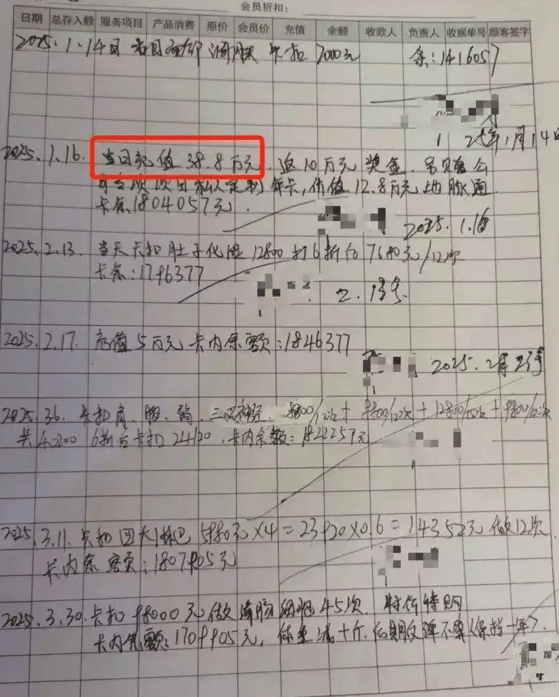 会员折扣：
日期 总存入额 服务项目 产品消费 原价 会员价 充值 余额 收款人 负责人 收据单号 顾客签字
2025.1.14日 卡扣 7000元 余：1416057
2025年1月14日
2025.1.16. 当日充值 38.8万元. 返10万元 奖金.
年卡，价值12.8万元
卡余1804057元. 2025.1.16
2025.2.13. 当天卡扣肚子 12800打6折后7680元/12次
卡余：1796377
2.13号
2025.2.17. 充值5万元 卡内余额：1846377
2025.2月
2025.3.6. 卡扣肩、 9800/12次+9800/12次+12800/12次+9800/12次
共 6折后卡扣 24120 . 卡内余额：1822257元
2025.3.11. 卡扣四大 5980元×4=23920×0.6=14352元 做12次
卡内余额：1807905元
2025.3.30. 卡扣98000元做 45次. 特价特购
卡内余额：1709905元， 体重减十斤. 后期反弹不算（保持一年）.